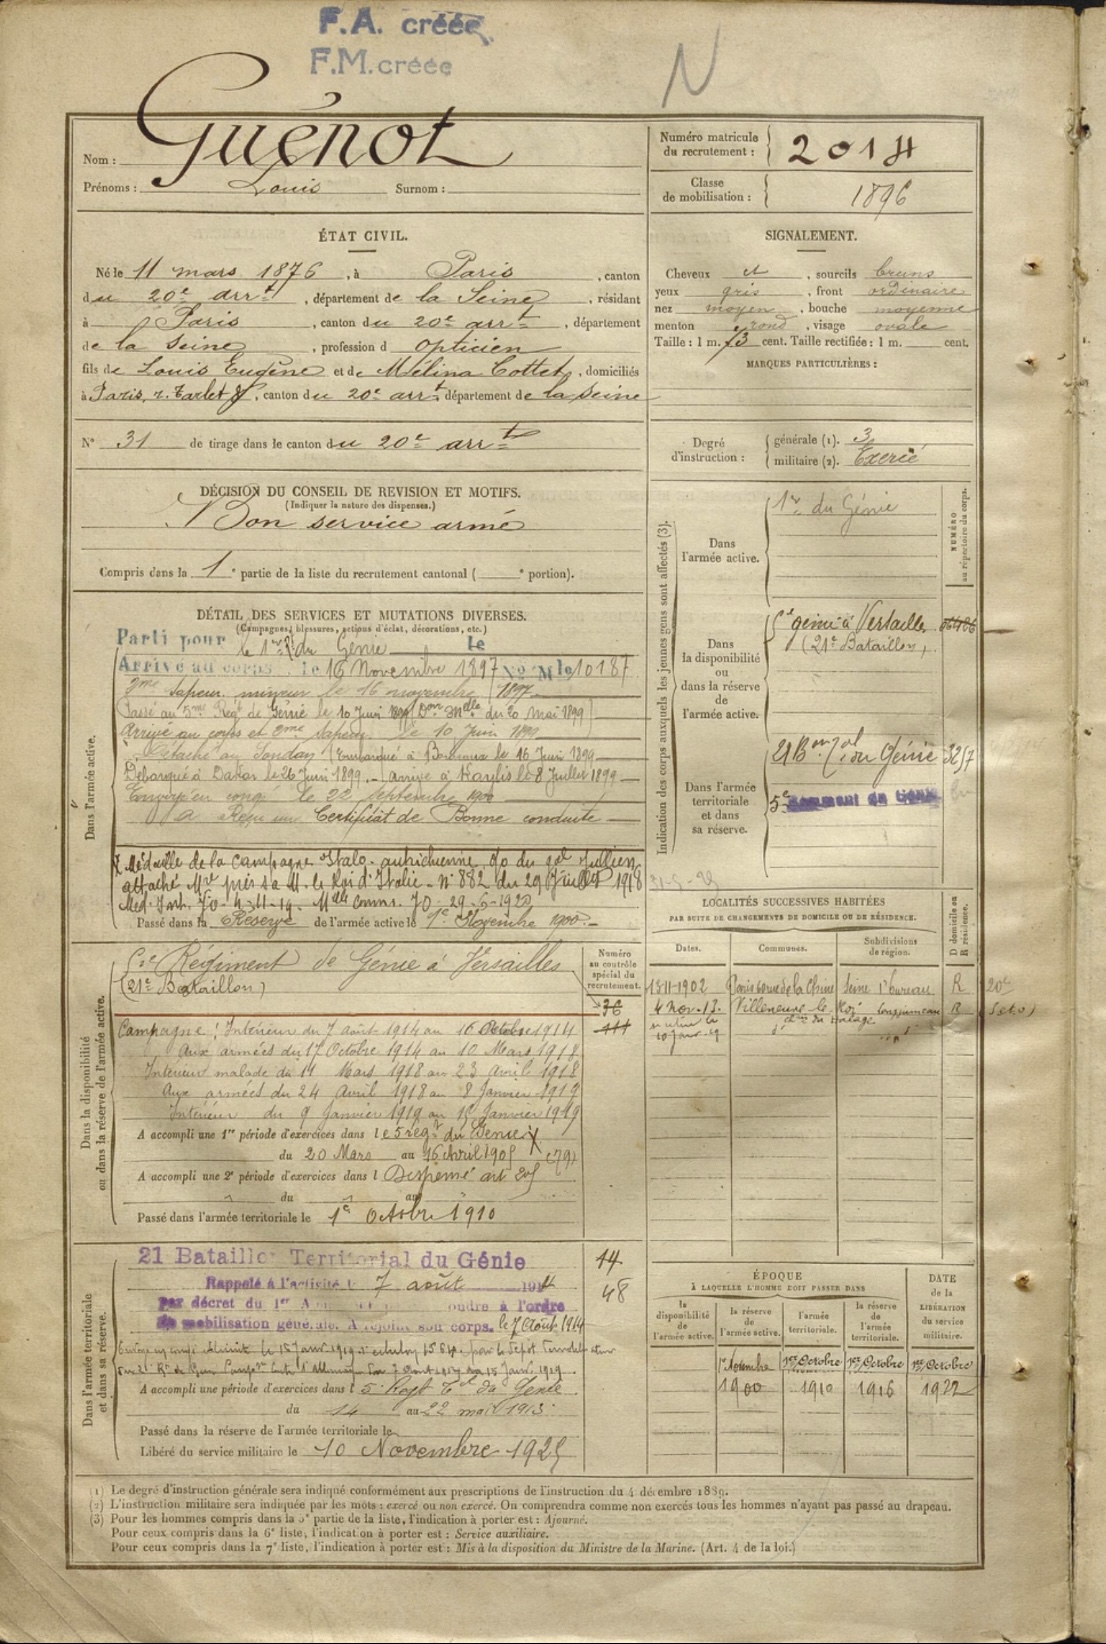 F.A. créée
F.M. créée
N
Nom : Guénot
Prénoms : Louis Surnom :
Numéro matricule du recrutement : 2014
Classe de mobilisation : 1896
ÉTAT CIVIL.
Né le 11 mars 1876, à Paris, canton
du 20e arrt, département de la Seine, résidant
à Paris, canton du 20e arrt, département
de la Seine, profession d opticien
fils de Louis Eugène et de Mélina Cottet, domiciliés
à Paris, r. , canton du 20e arrt département de la Seine
N° 31 de tirage dans le canton du 20e arrt
SIGNALEMENT.
Cheveux et, sourcils bruns
yeux gris, front ordinaire
nez moyen, bouche moyenne
menton rond, visage ovale
Taille : 1 m. 73 cent. Taille rectifiée : 1 m. cent.
MARQUES PARTICULIÈRES :
Degré d'instruction : générale (1). 3
militaire (2). Exercé
DÉCISION DU CONSEIL DE REVISION ET MOTIFS.
(Indiquer la nature des dispenses.)
Bon service armé
Compris dans la 1e partie de la liste du recrutement cantonal ( e portion).
Indication des corps auxquels les jeunes gens sont affectés (3).
NUMÉRO au répertoire du corps.
Dans l'armée active.
1er du Génie
Dans la disponibilité ou dans la réserve de l'armée active.
5e génie à Versailles
(21e Bataillon)
Dans l'armée territoriale et dans sa réserve.
21 Bon Tal du Génie 3257
5e
DÉTAIL DES SERVICES ET MUTATIONS DIVERSES.
(Campagnes, blessures, actions d'éclat, décorations, etc.)
Dans l'armée active.
Parti pour le 1er Rt du Génie le
Arrivé au corps le 16 Novembre 1897 No Mle 10187
2me Sapeur mineur le 16 novembre 1897
Passé au 5me Régt de Génie le 10 Juin 1899 (Don Mlle du 20 Mai 1899)
Arrivé au corps et 2me Sapeur le 10 Juin 1899
Détaché au Soudan (Embarqué à Bordeaux le 16 Juin 1899
Débarqué à Dakar le 26 Juin 1899. - arrivé à Kayes le 8 Juillet 1899
Envoyé en congé le 22 septembre 1900
A Reçu un Certificat de Bonne conduite
Médaille de la Campagne Italo-autrichienne, go du gal Jullien
attaché Mre près sa M. le Roi d'Italie - N° 882 du 29 Juillet 1918
Passé dans la Réserve de l'armée active le 1er Novembre 1900
31-5-29
LOCALITÉS SUCCESSIVES HABITÉES
PAR SUITE DE CHANGEMENTS DE DOMICILE OU DE RÉSIDENCE.
Dates. Communes. Subdivisions de région. D domicile ou R résidence.
18-11-1902 Paris Seine 1er bureau R 20e
4 Nov. 13. Villeneuve le Roi Longjumeau R
Dans la disponibilité ou dans la réserve de l'armée active.
Numéro au contrôle spécial du recrutement.
5e Régiment de Génie à Versailles
(21e Bataillon)
36
Campagne : Intérieur du 7 août 1914 au 16 Octobre 1914
Aux armées du 17 Octobre 1914 au 10 Mars 1918
Intérieur malade du 11 Mars 1918 au 23 Avril 1918
Aux armées du 24 Avril 1918 au 8 Janvier 1919
Intérieur du 9 Janvier 1919 au 15 Janvier 1919
A accompli une 1re période d'exercices dans le 5 régt du Génie
du 20 Mars au 16 Avril 1905
A accompli une 2e période d'exercices dans l Dispensé art
du au
Passé dans l'armée territoriale le 1er Octobre 1910
Dans l'armée territoriale et sa réserve.
21 Bataillon Territorial du Génie
14
48
Rappelé à l'activité le 7 août 1914
par décret du 1er A oudre à l'ordre
de mobilisation générale. A rejoint son corps. le 7 Août 1914
A accompli une période d'exercices dans l 5 Regt Tal du Génie
du 14 au 22 mai 1913
Passé dans la réserve de l'armée territoriale le
Libéré du service militaire le 10 Novembre 1925
ÉPOQUE
À LAQUELLE L'HOMME DOIT PASSER DANS
DATE de la LIBÉRATION DU service militaire.
la disponibilité de l'armée active. la réserve de l'armée active. l'armée territoriale. la réserve de l'armée territoriale.
1er Novembre 1er Octobre 1er Octobre 1er Octobre
1900 1910 1916 1922
(1) Le degré d'instruction générale sera indiqué conformément aux prescriptions de l'instruction du 4 décembre 1889.
(2) L'instruction militaire sera indiquée par les mots : exercé ou non exercé. On comprendra comme non exercés tous les hommes n'ayant pas passé au drapeau.
(3) Pour les hommes compris dans la 5e partie de la liste, l'indication à porter est : Ajourné.
Pour ceux compris dans la 6e liste, l'indication à porter est : Service auxiliaire.
Pour ceux compris dans la 7e liste, l'indication à porter est : Mis à la disposition du Ministre de la Marine. (Art. 4 de la loi.)